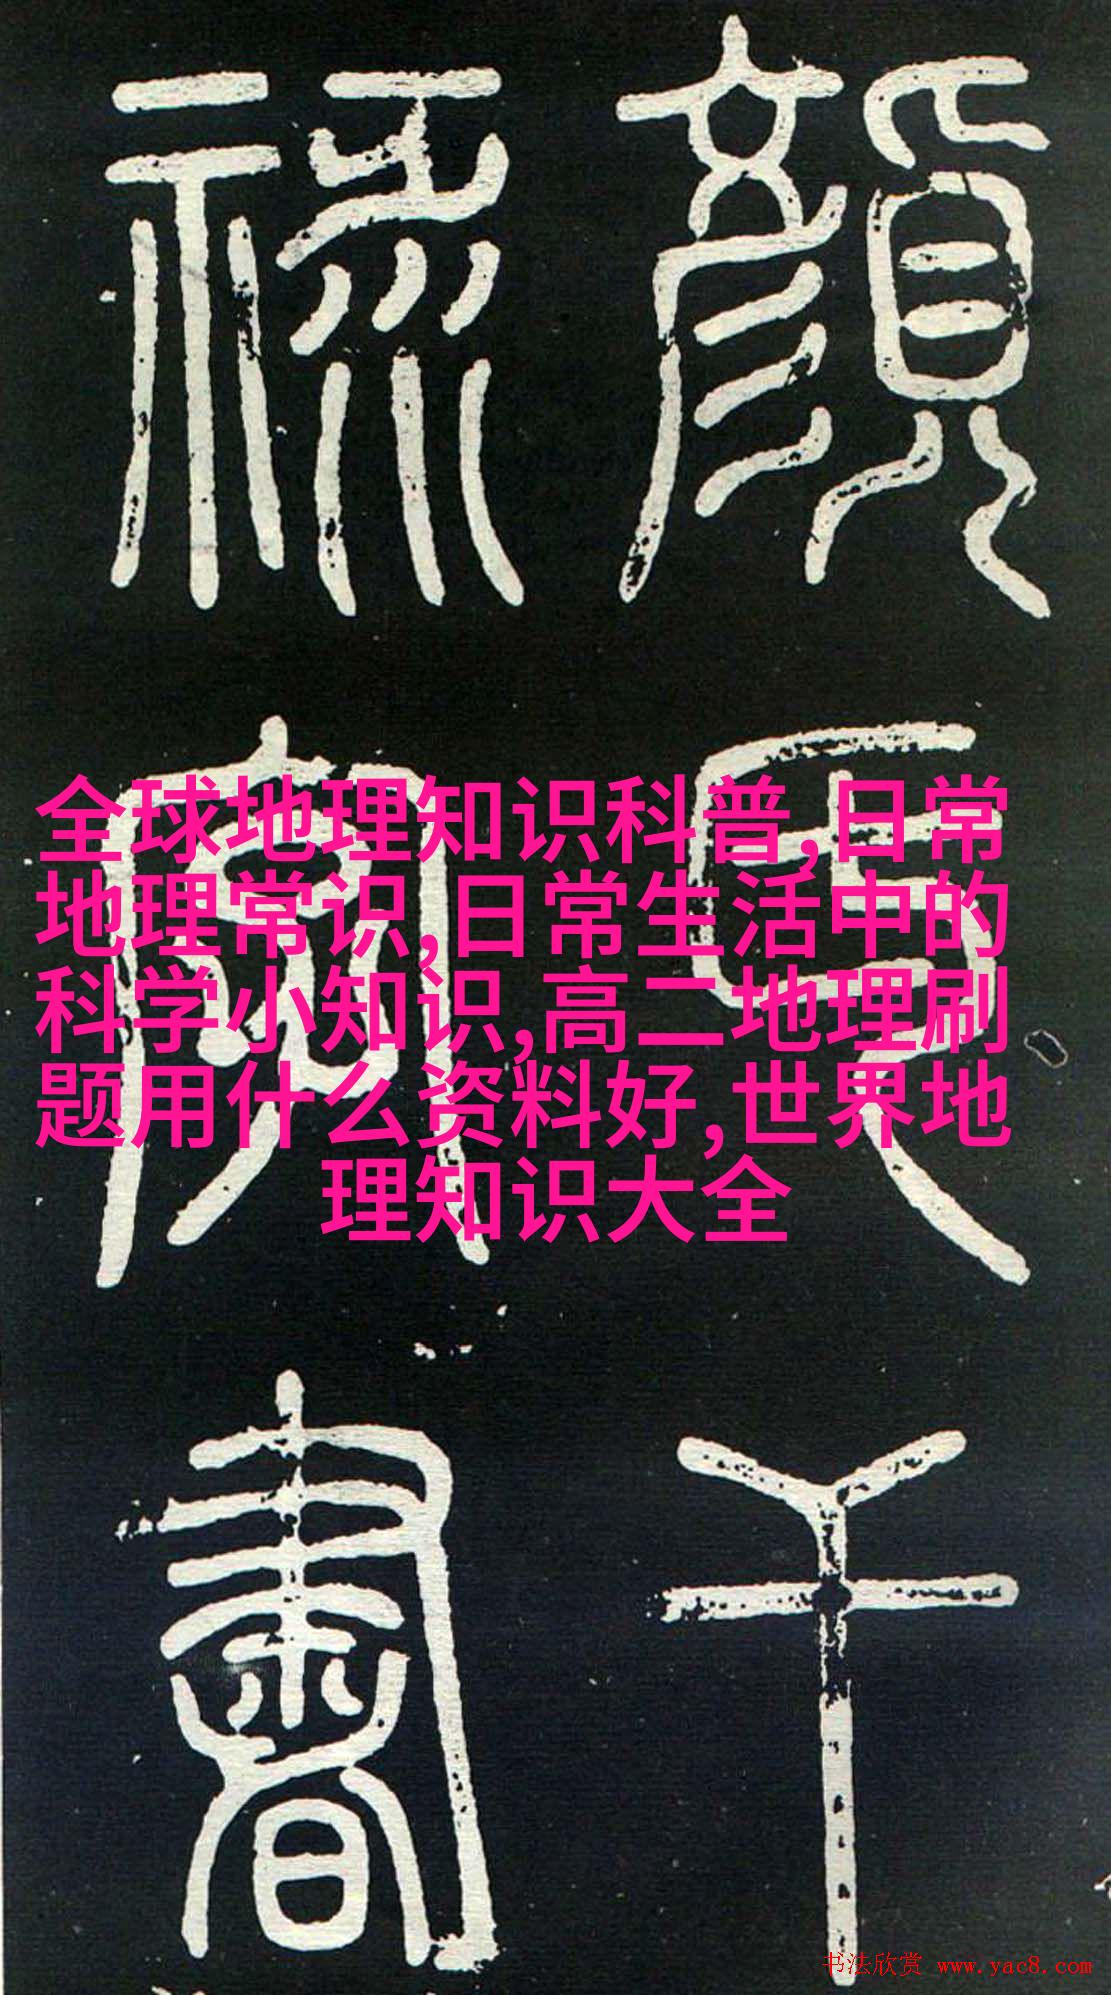 全球地理知识科普,日常
地理常识,日常生活中的
科学小知识,高二地理刷
题用什么资料好,世界地
理知识大全
顏
書
书法欣赏 www.yac8.com